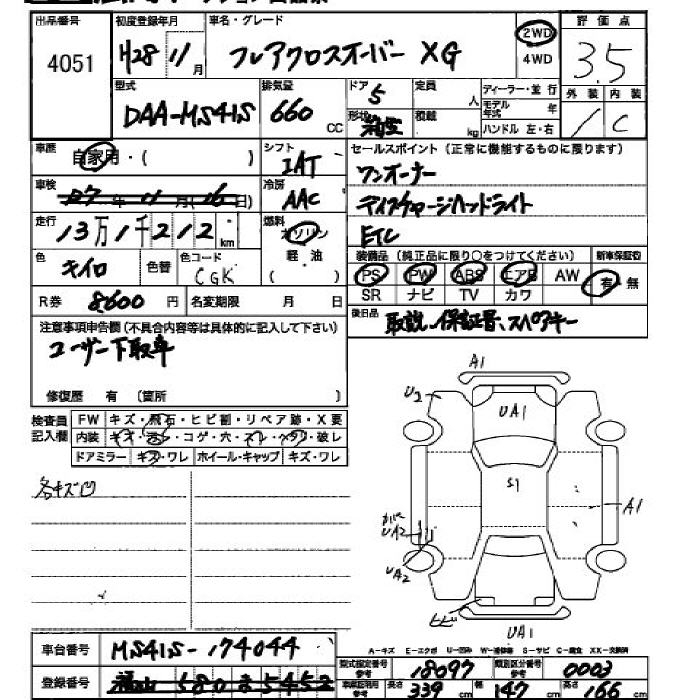 出品番号 初度登録年月 車名・グレード 評価点
4051 H28年11月 フレアクロスオーバー XG 2WD 3.5
4WD
型式 排気量 ドア 定員 ディーラー・並行 外装 内装
DAA-MS41S 660 CC 5 形状 積載 人 kg モデル年式 年 / C
ハンドル 左・右
車歴 自家用・( ) シフト セールスポイント (正常に機能するものに限ります)
IAT ワンオーナー
車検 27年11月(16日) 冷房 AAC ディスチャージヘッドライト
走行 13万1千212km 燃料 ガソリン ETC
軽油
( )
色 キイロ 色替 色コード CGK
装備品 (純正品に限り○をつけてください) 新車保証書
PS PW ABS エアB AW 有・無
SR ナビ TV カワ
R券 8,600円 名変期限 月 日
後日品 取説、保証書、スペアキー
注意事項申告欄 (不具合内容等は具体的に記入して下さい)
ユーザー下取車
修復歴 有 (箇所 )
検査員記入欄 FW キズ・飛石・ヒビ割・リペア跡・X要
内装 キズ・ヨゴレ・コゲ・穴・スレ・ヘタリ・破レ
ドアミラー キズ・ワレ ホイール・キャップ キズ・ワレ
各キズ凹
A1
U2
UA1
S1
A1
カバー UA2
UA2
ヒビ
UA1
A-キズ E-エクボ U-凹み W-補修跡 S-サビ C-腐食 XX-交換済
車台番号 MS41S-174044
登録番号 580 5452
型式指定番号 参考 18097 類別区分番号 参考 0003
車両区別用 参考 長さ 339 cm 幅 147 cm 高さ 166 cm